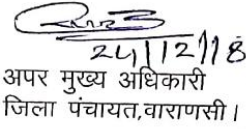 24/12/18
अपर मुख्य अधिकारी
जिला पंचायत,वाराणसी।